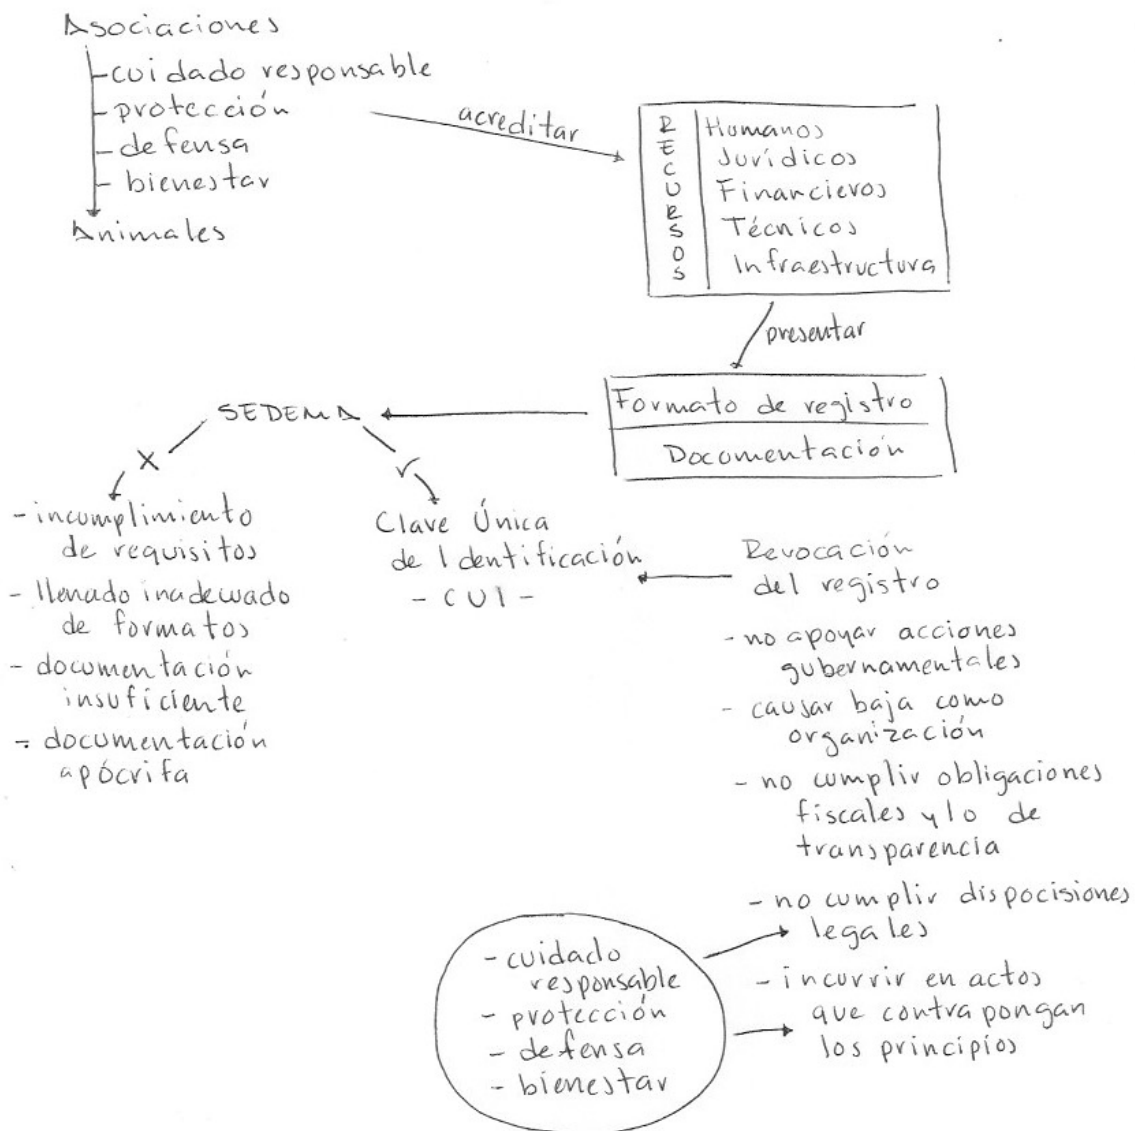 Asociaciones
- cuidado responsable
- protección
- defensa
- bienestar
Animales
acreditar
RECURSOS
Humanos
Jurídicos
Financieros
Técnicos
Infraestructura
presentar
Formato de registro
Documentación
SEDEMA
X
✓
- incumplimiento
de requisitos
- llenado inadecuado
de formatos
- documentación
insuficiente
- documentación
apócrifa
Clave Única
de Identificación
- CUI -
Revocación
del registro
- no apoyar acciones
gubernamentales
- causar baja como
organización
- no cumplir obligaciones
fiscales y/o de
transparencia
- no cumplir dispocisiones
legales
- incurrir en actos
que contrapongan
los principios
- cuidado
responsable
- protección
- defensa
- bienestar